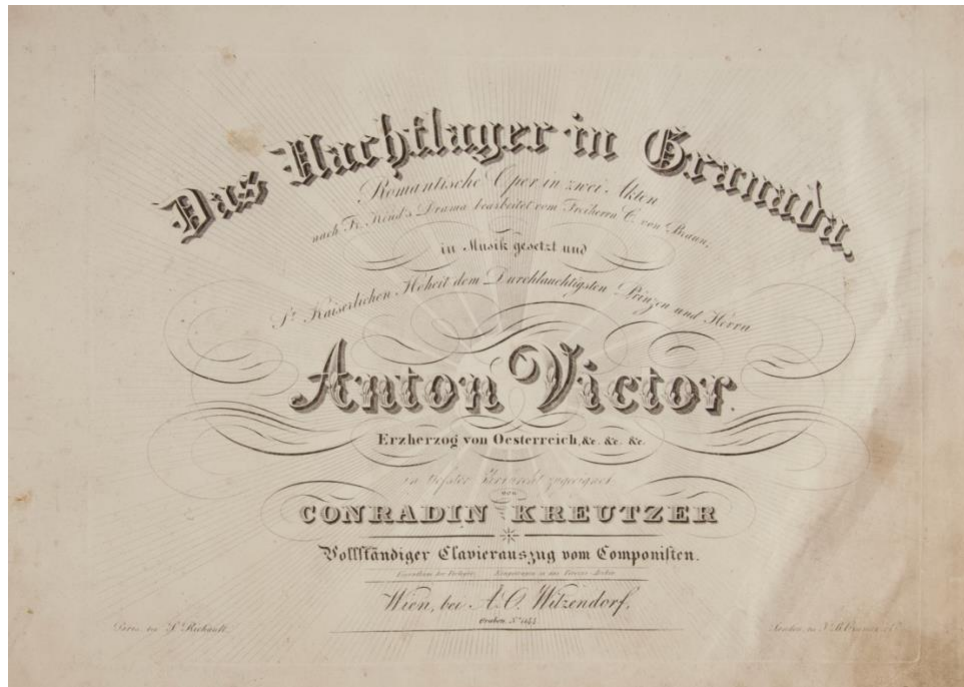 Das Nachtlager in Granada,
Romantische Oper in zwei Akten
nach Fr. Kind's Drama bearbeitet vom Freiherrn C. von Braun,
in Musik gesetzt und
Sr. Kaiserlichen Hoheit dem Durchlauchtigsten Prinzen und Herrn
Anton Victor.
Erzherzog von Oesterreich, &c. &c. &c.
in tiefster Ehrfurcht zugeeignet
von
CONRADIN KREUTZER
Vollständiger Clavierauszug vom Componisten.
Eigenthum des Verlegers. Eingetragen in das Vereins-Archiv.
Wien, bei A. O. Witzendorf,
Graben, No. 1144
Paris, bei S. Richault.
London, bei